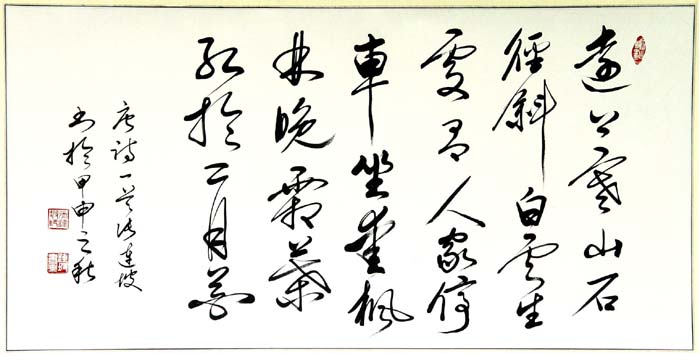 遠上寒山石
徑斜白雲生
處有人家停
車坐愛楓
林晚霜葉
紅於二月花
唐詩一首張連坡
書於甲申之秋